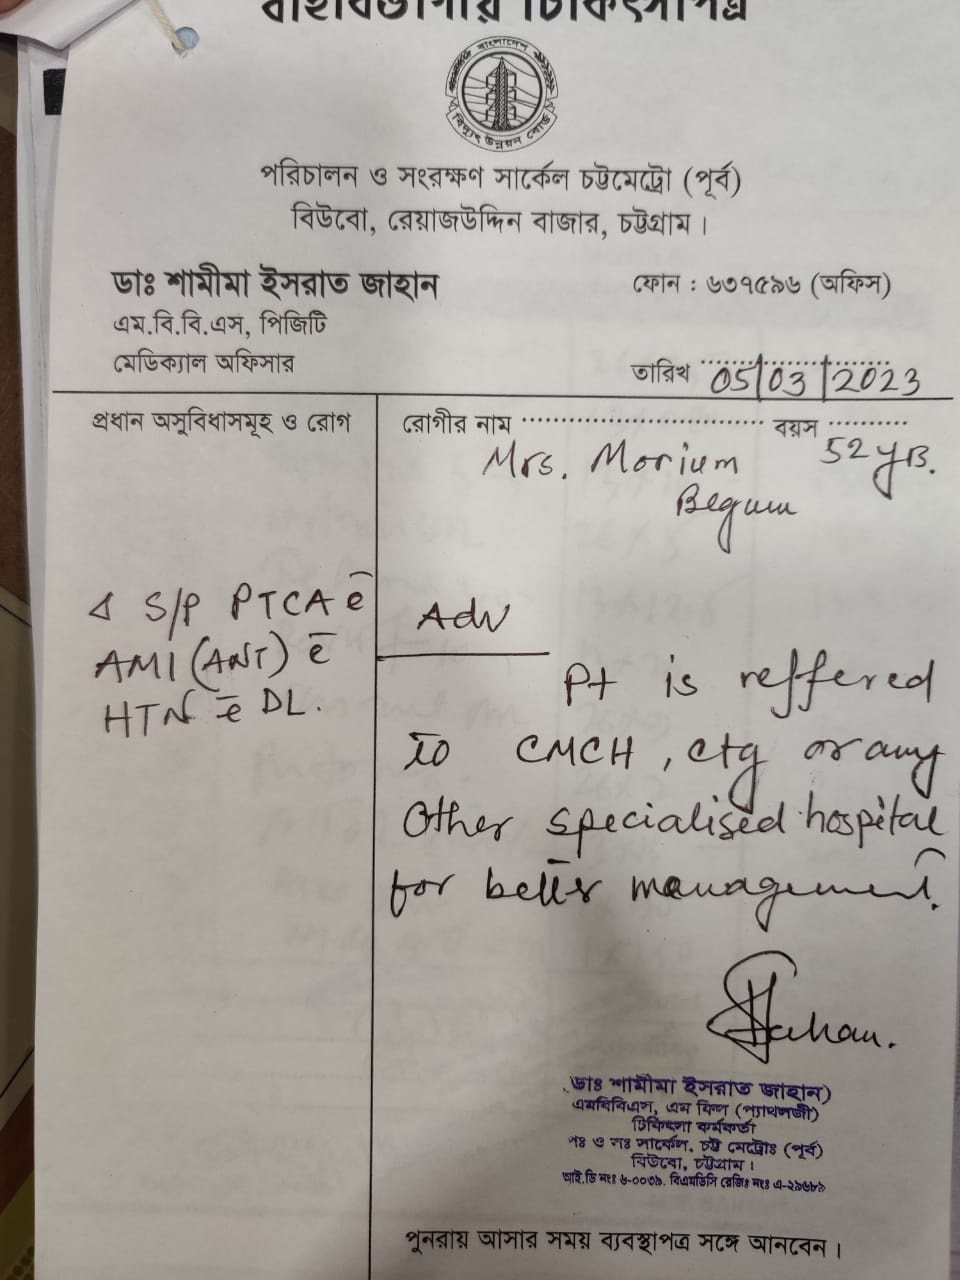 বহির্বিভাগীয় চিকিৎসাপত্র
বাংলাদেশ
বিদ্যুৎ উন্নয়ন বোর্ড
পরিচালন ও সংরক্ষণ সার্কেল চট্টমেট্রো (পূর্ব)
বিউবো, রেয়াজউদ্দিন বাজার, চট্টগ্রাম।
ডাঃ শামীমা ইসরাত জাহান
ফোন : ৬৩৭৫৯৬ (অফিস)
এম.বি.বি.এস, পিজিটি
মেডিক্যাল অফিসার
তারিখ 05/03/2023
প্রধান অসুবিধাসমূহ ও রোগ
রোগীর নাম .................................. বয়স ..........
Mrs. Morium 52 yrs.
Begum
S/P PTCA c̄
AMI (ANT) c̄
HTN c̄ DL.
Adv
Pt is reffered
to CMCH, ctg or any
other specialised hospital
for better management.
Jahan.
ডাঃ শামীমা ইসরাত জাহান)
এমবিবিএস, এম ফিল (প্যাথলজী)
চিকিৎসা কর্মকর্তা
পঃ ও সঃ সার্কেল, চট্ট মেট্রোঃ (পূর্ব)
বিউবো, চট্টগ্রাম।
আই.ডি নংঃ ৬-০০৩৯. বিএমডিসি রেজিঃ নংঃ এ-২৯৬৮৯
পুনরায় আসার সময় ব্যবস্থাপত্র সঙ্গে আনবেন।